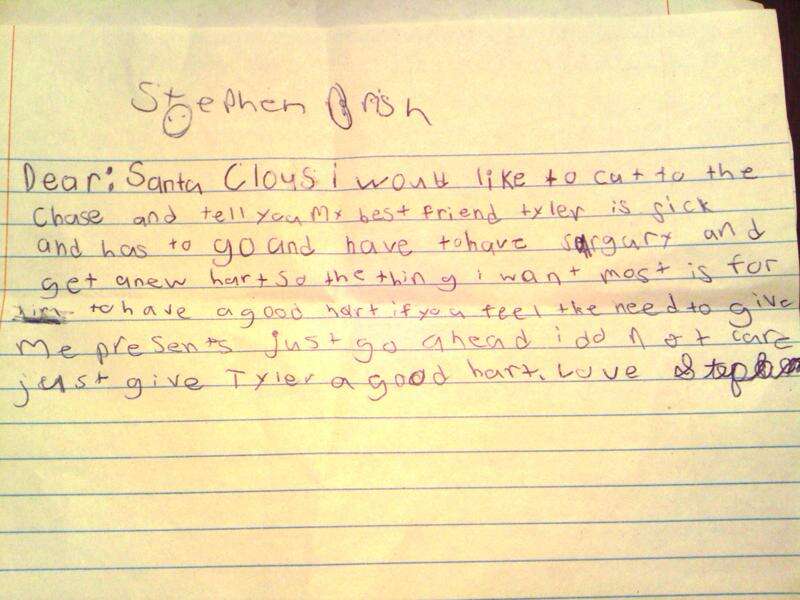 Stephen Brish
Dear: Santa Clous i would like to cut to the
Chase and tell you My best friend tyler is sick
and has to go and have to have surgury and
get a new hart so the thing i want most is for
him to have a good hart if you feel the need to give
Me presents just go ahead i do Not care
just give Tyler a good hart. Love Stephen